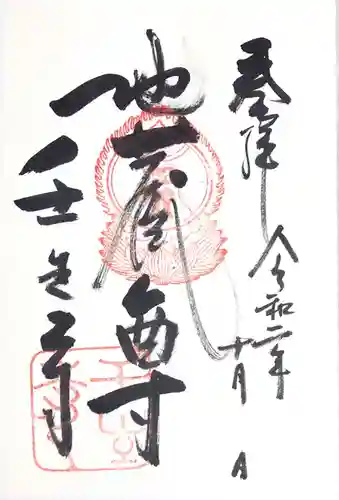 奉拝
令和二年
十月 日
地蔵尊
壬生寺